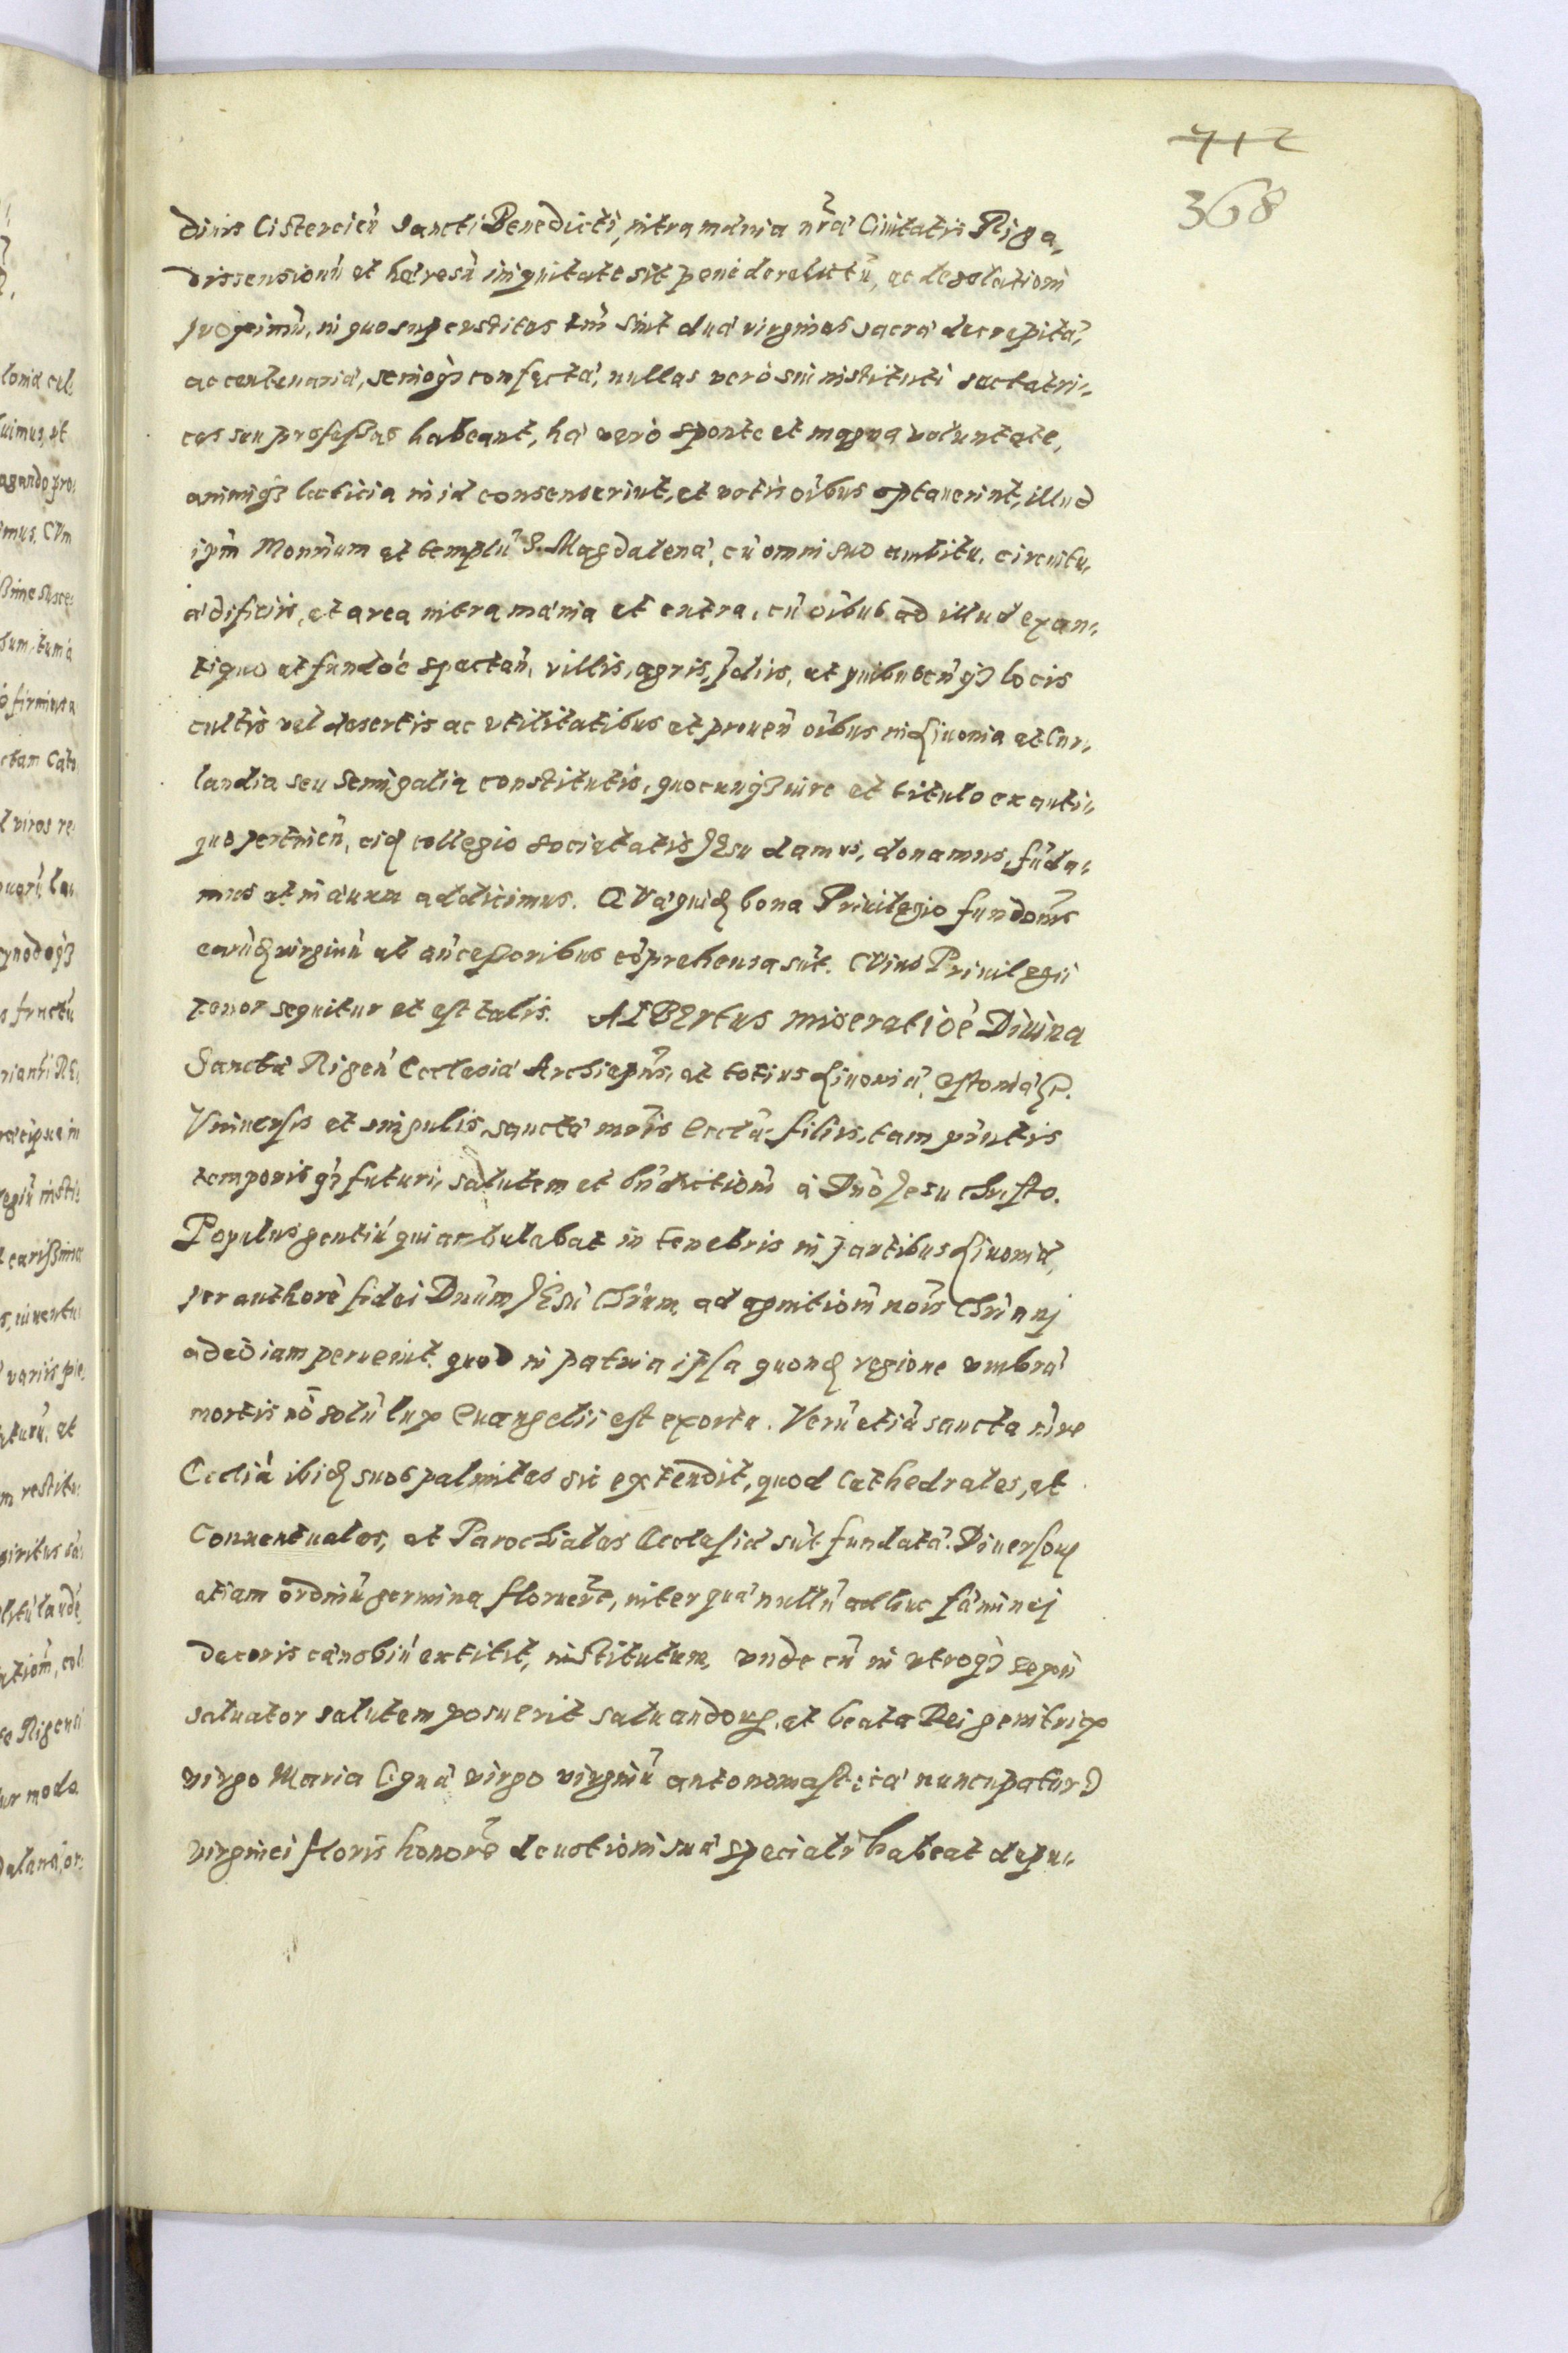 712
368
dinis Cistercień Sancti Benedicti, intra mænia nr̃æ Ciuitatis Rigæ,
dissensionũ et hæresũ iniquitate sit penè derelictũ, ac desolationi
proximũ, in quo superstites tm̃ sint duæ virgines sacræ decrepitæ,
ac centenariæ, senioq̃ȝ confectæ, nullas verò sui instituti sectatri-
ces seu professas habeant, hæ verò sponte et magna voluntate,
animiqȝ læticia in id consenserint, et votis oĩbus optauerint, illud
ipm̃ Monrium et templũ S. Magdalenæ, cũ omni suo ambitu, circuitu,
ædificiis, et area intra mænia et extra, cũ oĩbus ad illud ex an-
tiquo et fundõe spectań, villis, agris, p̃diis, et quibuscũqȝ locis
cultis vel desertis ac vtilitatibus et proueń oĩbus in Liuonia et Cur-
landia seu Semigalia constitutis, quocunqȝ iure et titulo ex anti-
quo pertinén, eidꝫ collegio Societatis JEsu damus, donamus, fũda-
mus et in æuum addicimus. QVæ quidꝫ bona Priuilegio fundõnis
earũdꝫ virginũ ab añcessoribus cõprehensa sũt. CVius Priuilegii
tenor sequitur et est talis. ALBErtus miseratiõe Diuina
Sanctæ Rigeń Ecclesiæ Archiepñs, et totius Liuoniæ, Estoniæ &c.
Vniuersis et singulis, sanctæ mr̃is Ecclæ filiis, tam p̃ntis
temporis qȝ futuri, salutem et bñdictiom̃ à Dnõ Jesu Christo.
Populus gentiũ qui ambulabat in tenebris in partibus Liuoniæ,
per authorẽ fidei Dnũm JEsũ Chrũm, ad agnitiom̃ nõis Chriani
adeò iam peruenit, quod in patria ipsa quondꝫ regione vmbræ
mortis nõ solũ lux Euangelii est exorta. Verũ etiã sancta siue
Ecclia ibidꝫ suos palmites sic extendit, quod Cathedrales, et
Conuentuales, et Parochiales Ecclesiæ sũt fundatæ. Diuersoꝝ
etiam ordinũ germina floruer̃t, inter quæ nullũ adhuc fæminej
decoris cænobiũ extitit, institutum, vnde cũ in vtroqȝ sexu
saluator salutem posuerit saluandoꝝ, et beata Dei genitrix
virgo Maria (quæ virgo virginũ antonomasticæ nuncupatur)
virginei floris honorẽ deuotioni suæ specialr̃ habeat depu-